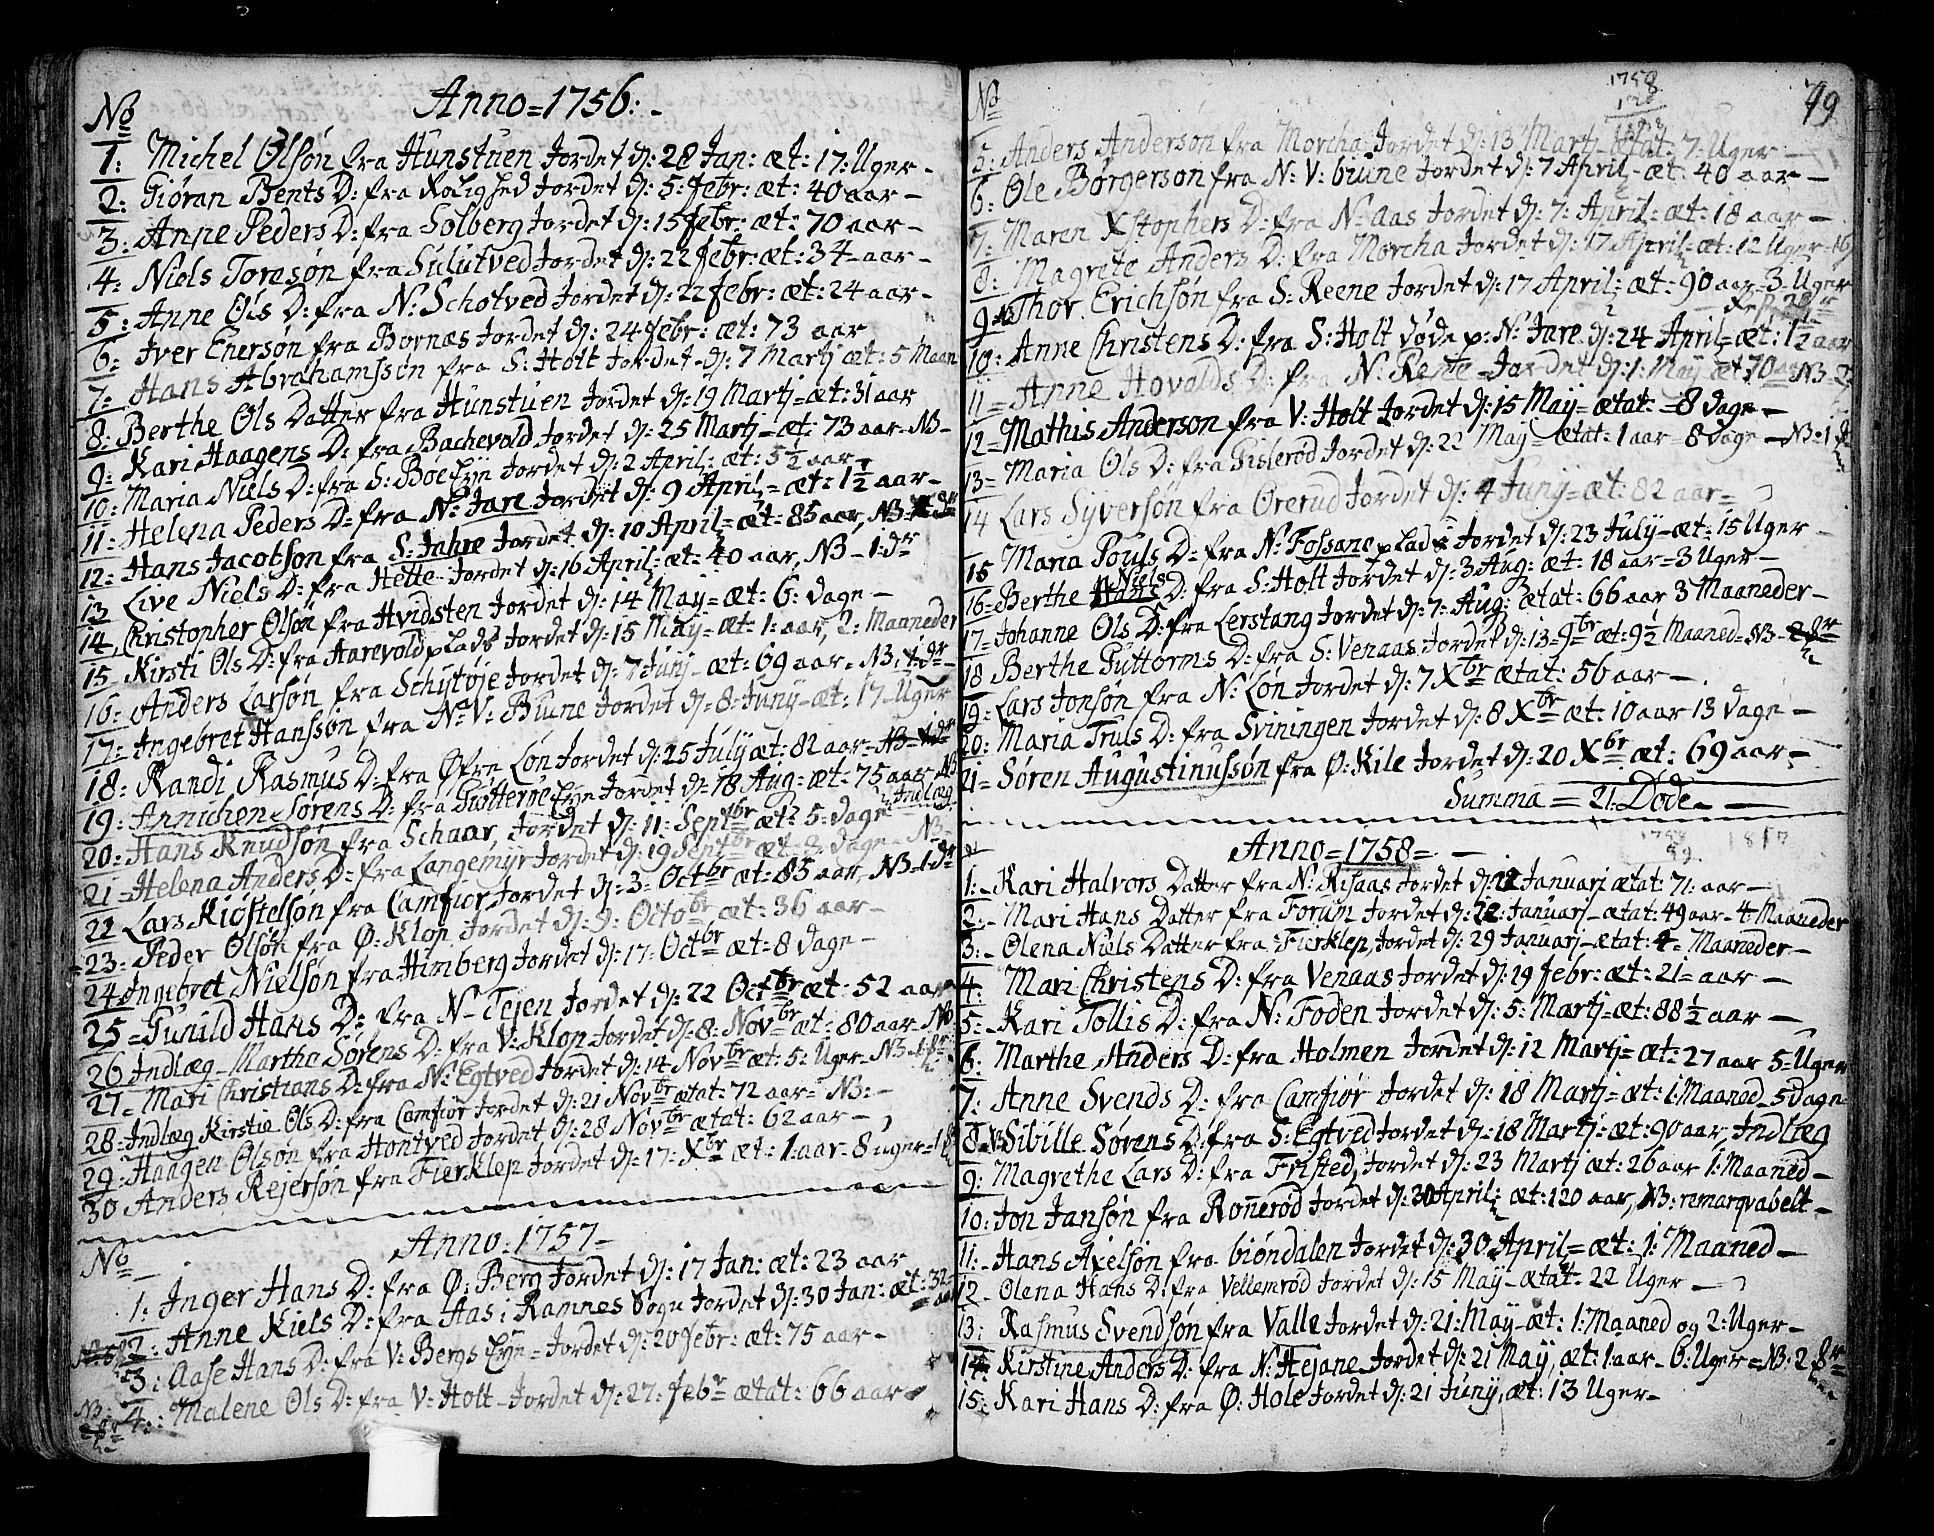 Anno = 1756: -
No
1: Michel Olsøn fra Hunstuen Jordet d: 28 Jan: æt: 17: Uger -
2: Giøran Bents D: fra Rolighed Jordet d: 5: febr: æt: 40 aar -
3: Anne Peders D: fra Solberg Jordet d: 15 febr: æt: 70 aar -
4: Niels Toresøn fra Sulutved Jordet d: 22 febr: æt: 34 aar -
5: Anne Ols D: fra N: Schotved Jordet d: 22 febr: æt: 24 aar -
6: Iver Enersøn fra Bornæs Jordet d: 24 febr: æt: 73 aar
7: Hans Abrahamssøn fra S: Holt Jordet d: 7 Martj æt: 5 Maan
8: Berthe Ols Datter fra Hunstuen Jordet d: 19 Martj = æt: 31 aar
9: Kari Haagens D: fra Bachevold Jordet d: 25 Martj = æt: 73 aar - NB -
10: Maria Niels D: fra S: Boe Eye Jordet d: 2 April: æt: 5 1/2 aar -
11: Helena Peders D: fra N: Jare Jordet d: 9 April = æt: 1 1/2 aar -
12: Hans Jacobsøn fra S: Jahre Jordet d: 10 April = æt: 85 aar, NB
13 Live Niels D: fra Hette Jordet d: 16 April: æt: 40 aar, NB - 1: dr
14 Christopher Olsøn fra Hvidsten Jordet d: 14 May = æt: 6: dage -
15 Kirsti Ols D: fra Aarevold plads Jordet d: 15 May = æt: 1: aar, 2: Maaneder
16: Anders Larsøn fra Schytøje Jordet d: 7 Juny - æt: 69 aar - NB
17: Ingebret Hanssøn fra N: V: Biune Jordet d: 8: Juny - æt: 17 Uger
18: Randi Rasmus D: fra Øfre Løn Jordet d: 25 July æt: 82 aar =
19: Annichen Sørens D: fra Eye Jordet d: 18 Aug: æt: 75 aar NB
Indlæg
20: Hans Knudsøn fra Schaar, Jordet d: 11: Septbr = æt: 5: dage
21 = Helena Anders D: fra Langemyr Jordet d: 19 Septbr æt: dage - NB -
22 Lars Kiøstelsøn fra Camfiør Jordet d: 3: Octbr æt: 85 aar - NB - 1: dr
23: Peder Olsøn fra Ø: Klop Jordet d: 9: Octobr æt: 36 aar -
24 Ingebret Nielsøn fra Himberg Jordet d: 17: Octbr æt: 8 dage -
25 = Gunild Hans D: fra N: Tejen Jordet d: 22 Octbr æt: 52 aar
26 Indlæg - Martha Sørens D: fra V: Klop Jordet d: 8: Novbr æt: 80 aar - No
27 = Mari Christians D: fra N: Egtved Jordet d: 14 Novbr æt: 5: Uger - NB - 1
28 = Indlæg Kirstie Ols D: fra Camfiør Jordet d: 21 Novbr ætat: 72 aar = NB: -
29: Haagen Olsøn fra Hontved Jordet d: 28 Novbr ætat: 62 aar -
30 Anders Rejersøn fra Fierklep Jordet d: 17: Xbr æt: 1: aar - 8 uger =
Anno: 1757 -
No
1: Inger Hans D: fra Ø: Berg Jordet d: 17 Jan: æt: 23 aar
2: Anne Kiels D: fra Aas: Ramnes Sogn Jordet d: 30 Jan: æt: 32 aar
3: Aase Hans D: fra V: Bergs Eye = Jordet d: 20 febr: æt: 75 aar -
NB: 4: Malene Ols D: fra V: Holt - Jordet d: 27: febr ætat: 66 aar
1758
79
No
5: Anders Andersøn fra Morcha Jordet d: 13 Martj - ætat: 7: Uger -
6: Ole Børgersøn fra N: V: biune Jordet d: 7 April - æt: 40 aar -
7: Maren Xstophers D: fra N: Aas Jordet d: 7: April: æt: 18 aar -
8: Magrete Anders D: fra Morcha Jordet d: 17 April = æt: 12 Uger
9 Thor Erichsøn fra S: Reene Jordet d: 17 April: æt: 90 aar - 3: Uger
10: Anne Christens D: fra S: Holt døde p: N: Jare d: 24 April = æt: 1 1/2 aar
11 = Anne Hovalds D: fra N: Rente - Jordet d: 1: May æt 70 aar = NB - 2
12 = Mathis Andersøn fra V: Holt Jordet d: 15 May = ætat: = 8 dage -
13 = Maria Ols D: fra Gislerød Jordet d: 22 May = ætat: 1 aar - 8 dage - NB - 1
14 Lars Syversøn fra Ørerud Jordet d: 4 Juny = æt: 82 aar =
15 Maria Pouls D: fra N: Fossane plads Jordet d: 23 July - æt: 15 Uger -
16 = Berthe Niels D: fra S: Holt Jordet d: 3 Aug: æt: 18 aar = 3 Uger -
17 = Johanne Ols D: fra Lerstang Jordet d: 7: Aug: ætat: 66 aar 3 Maaneder -
18 Berthe Guttorms D: fra S: Venaas Jordet d: 13 - 9br æt: 9 1/2 Maaned = NB -
19 = Lars Jonsøn fra N: Løn Jordet d: 7 Xbr ætat: 56 aar -
20: Maria Truls D: fra Sviningen Jordet d: 8 Xbr æt: 10 aar 13 dage -
21 = Søren Augustinussøn fra Ø: Kile Jordet d: 20 Xbr æt: 69 aar -
Summa = 21: Døde -
Anno = 1758 = -
1: - Kari Halvors Datter fra N: Risaas Jordet d: 12 Januari ætat: 71: aar -
2: - Mari Hans Datter fra Forum Jordet d: 12: Januarj - ætat: 49 aar - 4: Maaneder
3: - Olena Niels Datter fra Fierklep, Jordet d: 29 Januarj - ætat: 4 - Maaneder -
4: Mari Christens D: fra Venaas Jordet d: 19 febr: æt: 21 = aar -
5: - Kari Tollis D: fra N: Foden Jordet d: 5: Martj = æt: 88 1/2 aar -
6: Marthe Anders D: fra Holmen Jordet d: 12 Martj = æt: 27 aar 5 = Uger
7: Anne Svends D: fra Camfiør Jordet d: 18 Martj = æt: 1: Maaned - 5 Dage
8: Sibille Sørens D: fra S: Egtved Jordet d: 18 Martj: = æt: 90 aar, Indlæg
9: Magrethe Lars D: fra Fristed, Jordet d: 23 Martj æt: 26 aar 1: Maaned -
10: Jon Jansøn fra Ronerød Jordet d: 30 April: æt: 120 aar, NB: remarqvabelt -
11: - Hans Axelsøn fra biøndalen Jordet d: 30 April = æt: 1: Maaned -
12 - Olena Hans D: fra Vellemrød Jordet d: 15 May - ætat: 22 Uger -
13: Rasmus Svendsøn fra Valle Jordet d: 21: May - æt: 1: Maaned og 2: Uger -
14 = Kirstine Anders D: fra N: Hejane - Jordet d: 21 May, æt: 1: aar - 6: Uger = NB: 2
15: Kari Hans D: fra Ø: Hole Jordet d: 21 Juny, æt: 13 Uger -